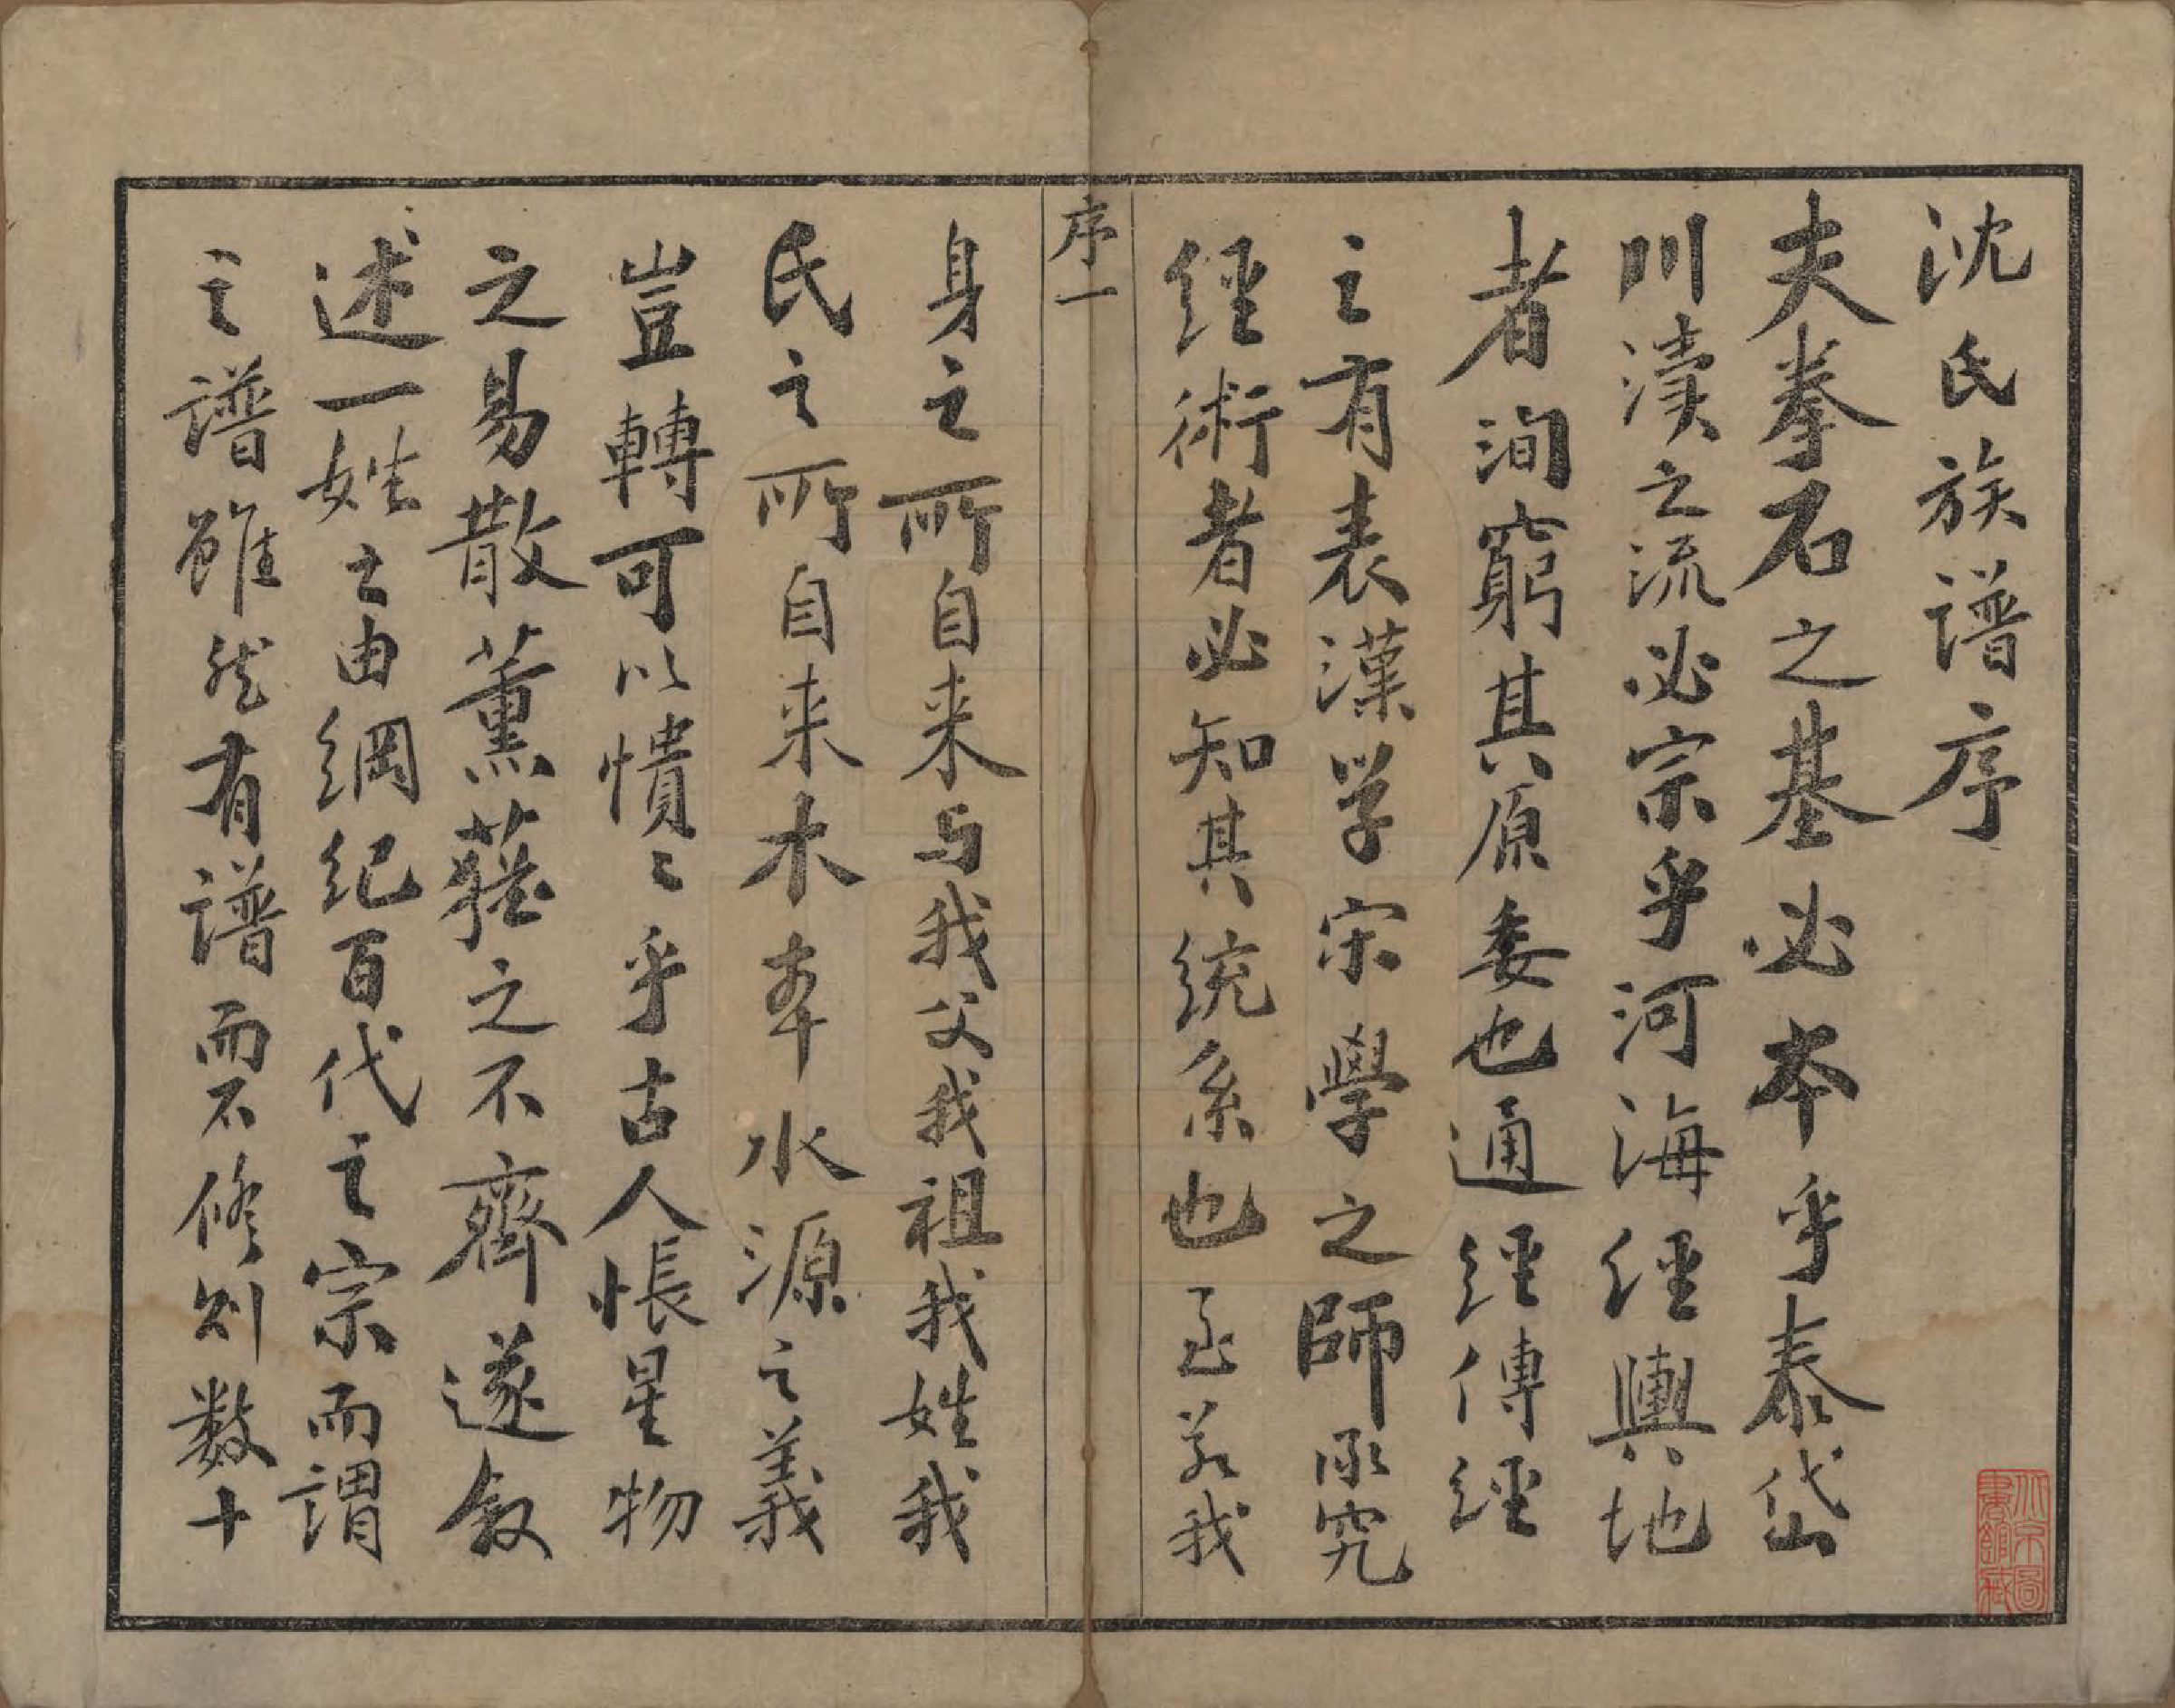 沈氏族譜序
夫拳石之基必本乎泰岱
川瀆之流必宗乎河海經輿地
者洵窮其原委也通經傳經
之有表漢学宋學之師承究
經術者必知其統系也至若我
序一
身之所自来与我父我祖我姓我
氏之所自来木本水源之義
豈轉可以憒〻乎古人悵星物
之易散薰蕕之不齊遂叙
述一姓士由綱紀百代之宗而謂
之譜雖然有譜而不修則数十
北京圖
書館藏